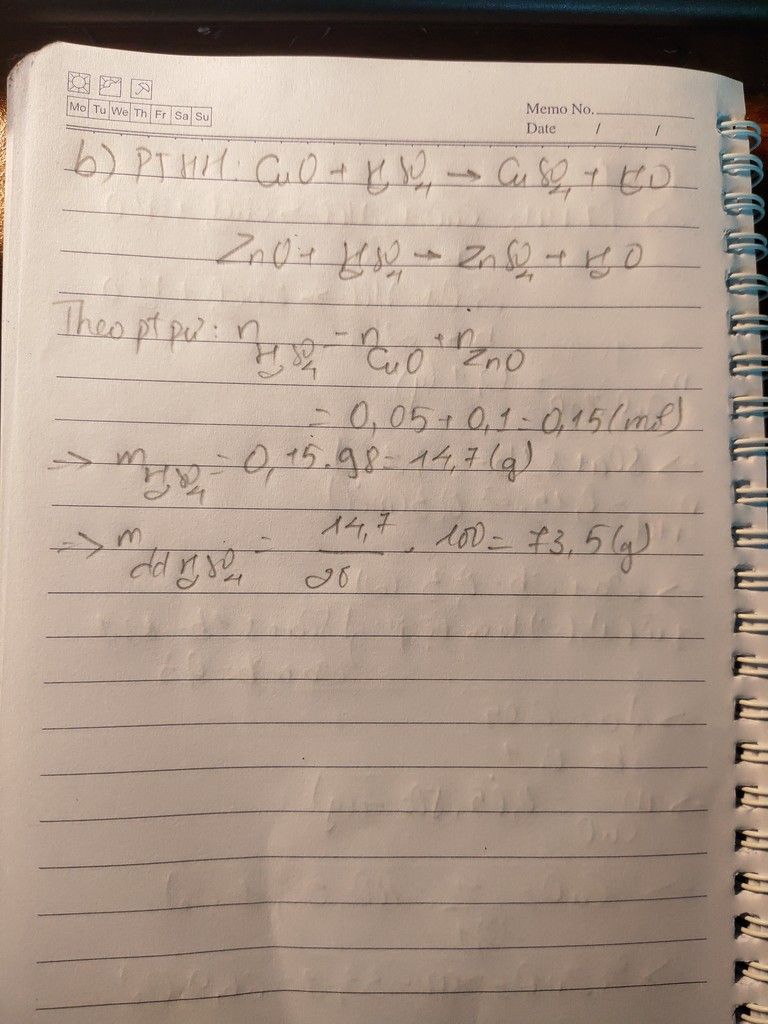 Mo Tu We Th Fr Sa Su
Memo No.
Date / /
b) PTHH: CuO + H₂SO₄ → CuSO₄ + H₂O
ZnO + H₂SO₄ → ZnSO₄ + H₂O
Theo pt pứ: n H₂SO₄ = n CuO + n ZnO
= 0,05 + 0,1 = 0,15 (mol)
=> m H₂SO₄ = 0,15.98 = 14,7 (g)
=> m dd H₂SO₄ = 14,7 / 20 . 100 = 73,5 (g)